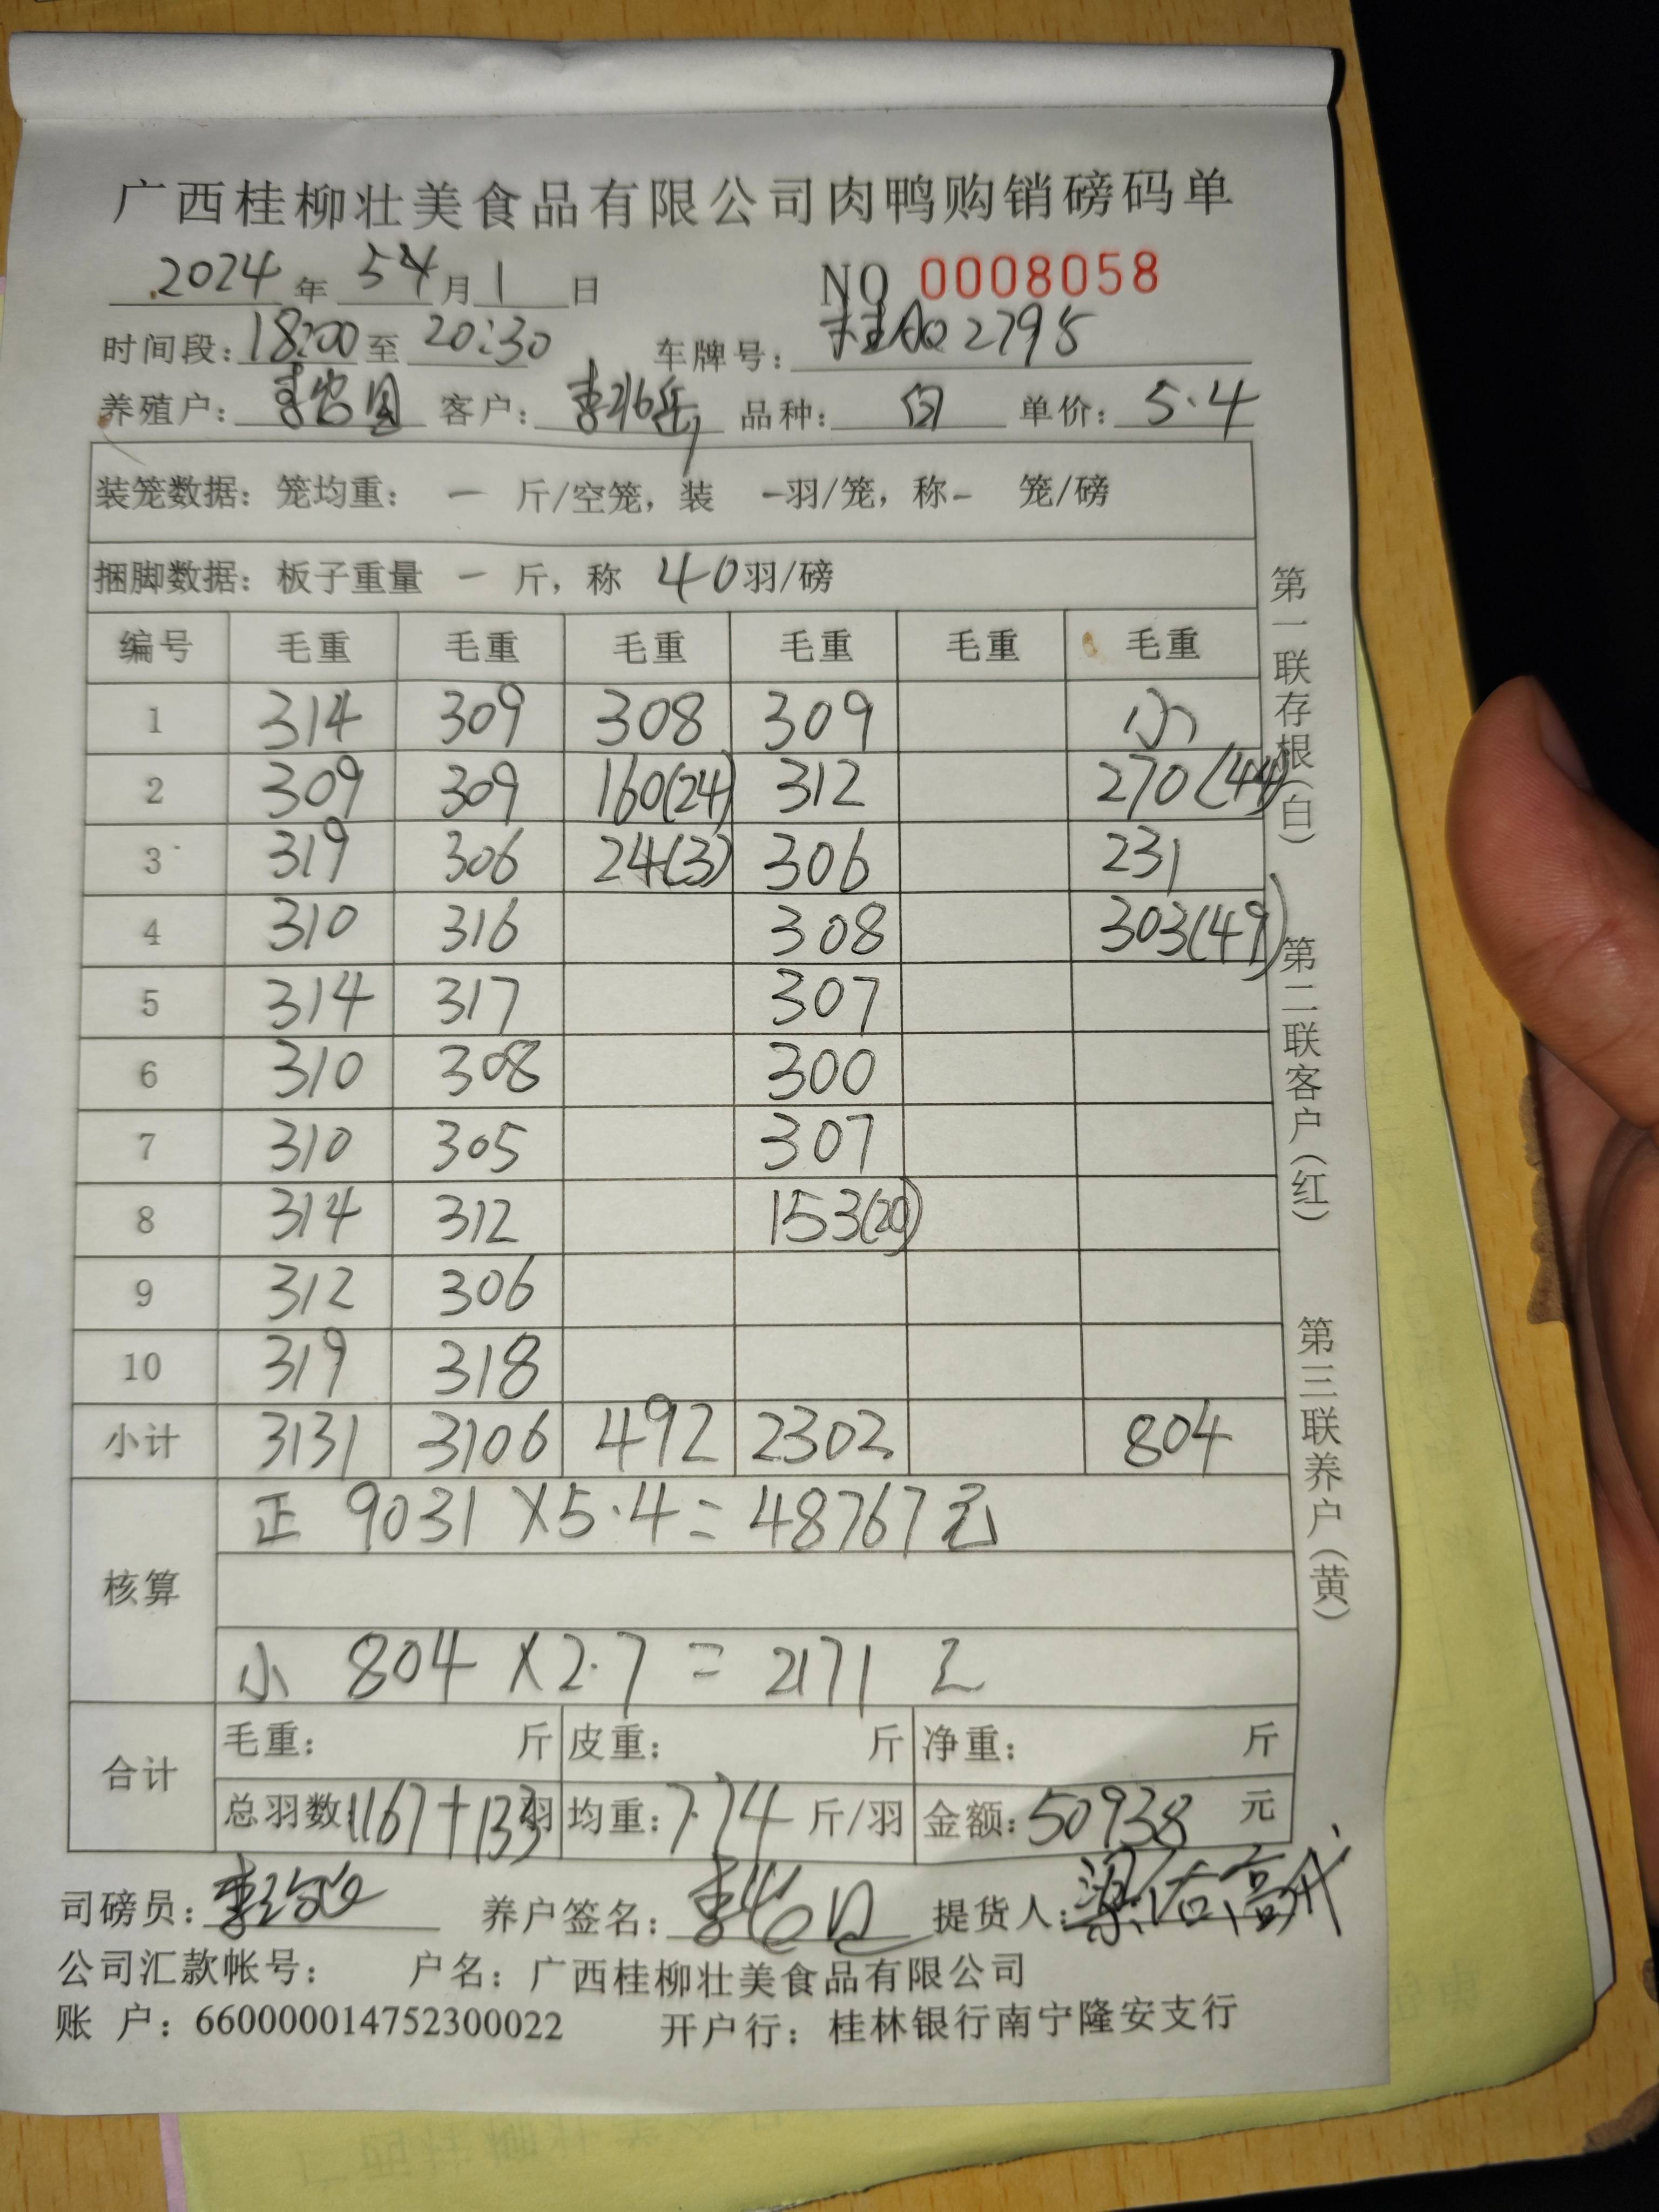 广西桂柳壮美食品有限公司肉鸭购销磅码单
2024年 54月1日 NO 0008058
时间段:18:00至20:30 车牌号: 2795
养殖户: 李 客户: 李 品种: 白 单价: 5.4
装笼数据: 笼均重: 一 斤/空笼, 装 -羽/笼, 称- 笼/磅
捆脚数据: 板子重量 一 斤, 称 40羽/磅
编号 毛重 毛重 毛重 毛重 毛重 毛重
1 314 309 308 309 小
2 309 309 160(24) 312 270(44)
3 319 306 24(3) 306 231
4 310 316 308 303(49)
5 314 317 307
6 310 308 300
7 310 305 307
8 314 312 153(20)
9 312 306
10 319 318
小计 3131 3106 492 2302 804
核算
正 9031 X5.4=48767元
小 804 X2.7=2171 元
合计
毛重: 斤 皮重: 斤 净重: 斤
总羽数:1167+133羽 均重:7.74斤/羽 金额:50938元
司磅员: 李 养户签名: 李 提货人:
公司汇款帐号: 户名: 广西桂柳壮美食品有限公司
账 户: 660000014752300022 开户行: 桂林银行南宁隆安支行
第一联存根(白) 第二联客户(红) 第三联养户(黄)